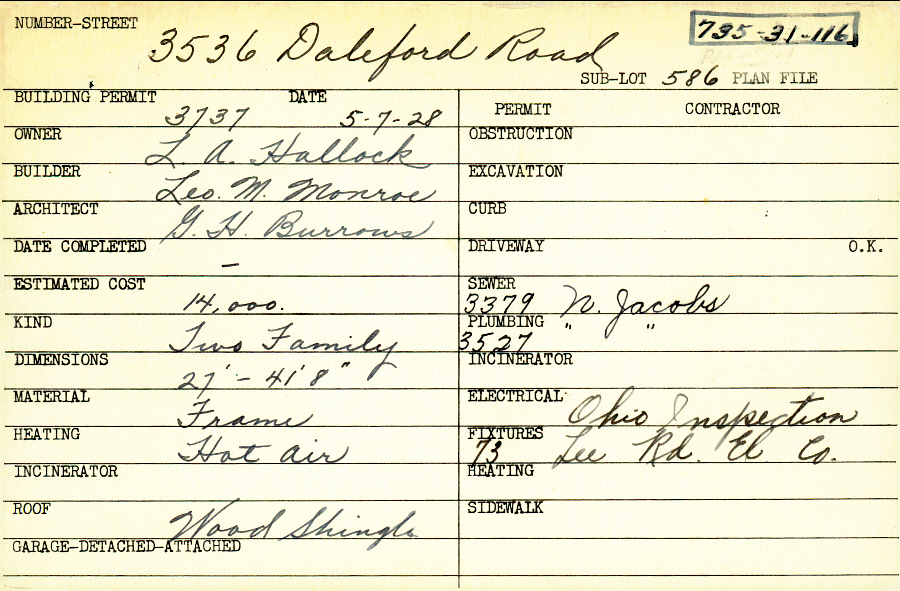 NUMBER-STREET
3536 Daleford Road
735-31-116
SUB-LOT 586 PLAN FILE
BUILDING PERMIT 3737 DATE 5-7-28
OWNER L. A. Hallock
BUILDER Leo. M. Monroe
ARCHITECT G. H. Burrows
DATE COMPLETED –
ESTIMATED COST 14,000.
KIND Two Family
DIMENSIONS 27' - 41' 8"
MATERIAL Frame
HEATING Hot Air
INCINERATOR
ROOF Wood Shingle
GARAGE-DETACHED-ATTACHED
PERMIT CONTRACTOR
OBSTRUCTION
EXCAVATION
CURB
DRIVEWAY O.K.
SEWER
3379 N. Jacobs
PLUMBING " "
3527
INCINERATOR
ELECTRICAL Ohio Inspection
FIXTURES
73 Lee Rd. El Co.
HEATING
SIDEWALK